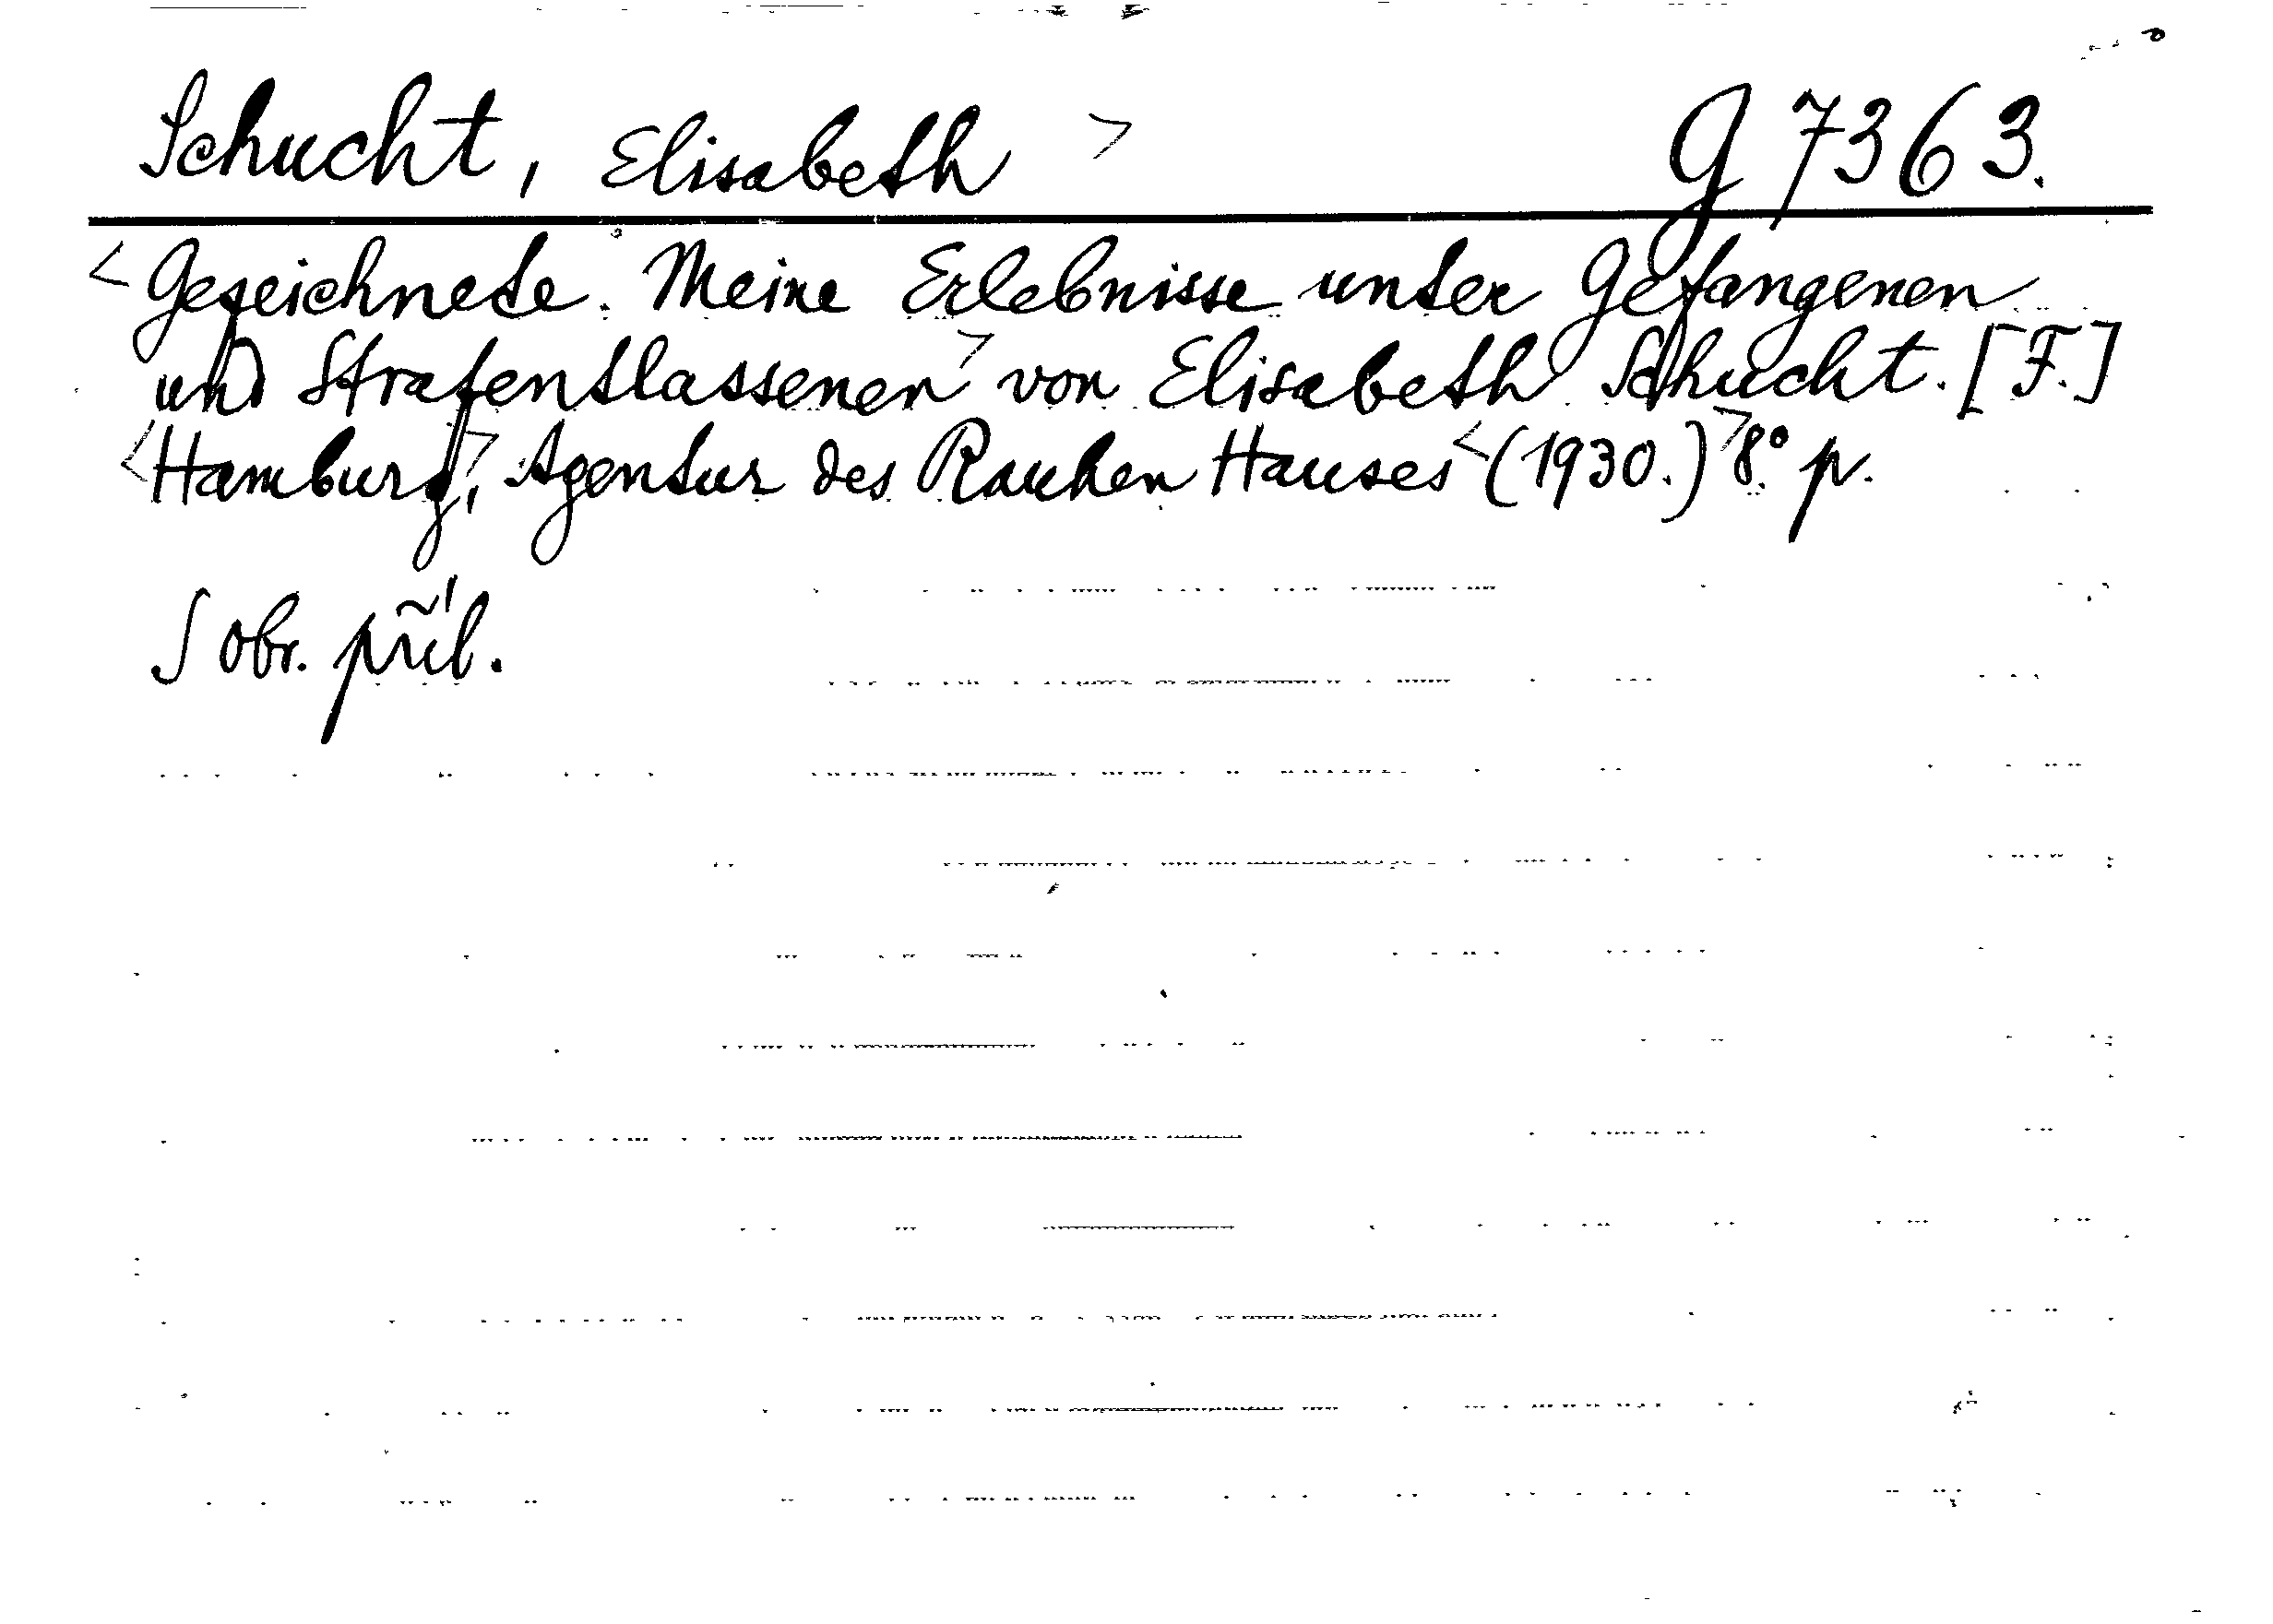 Schucht, Elisabeth > G 7363.
<Gezeichnete. Meine Erlebnisse unter Gefangenen
und Strafentlassenen> von Elisabeth Schucht. [F.]
<Hamburg>, Agentur des Rauhen Hauses <(1930.)> 8° p.
S obr. příl.